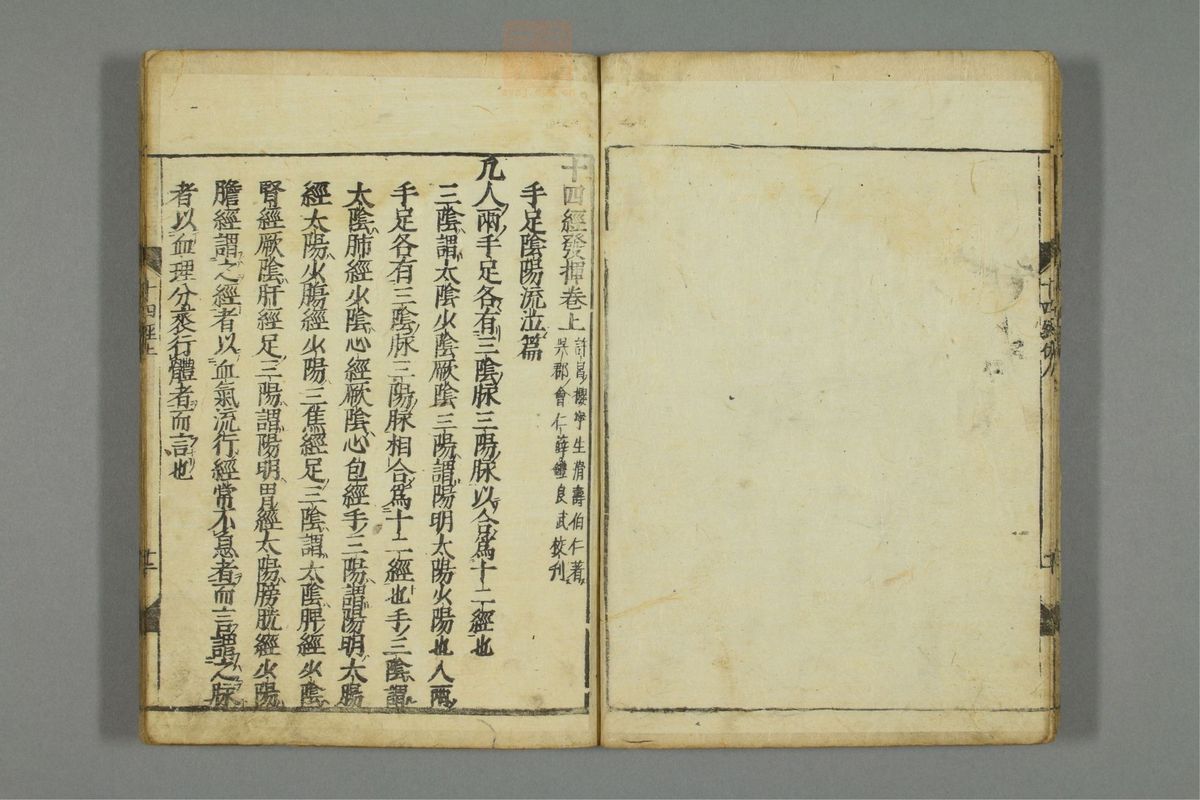 十四經發揮卷上
許昌櫻寧生滑壽伯仁著
吳郡會仁薛鎧良武挍刋
手足陰陽流泣篇
凡人兩手足各有三陰脉三陽脉以合爲十二經也
三陰謂太陰少陰厥陰三陽謂陽明太陽少陽也人兩
手足各有三陰脉三陽脉相合爲十二經也手三陰謂
太陰肺經少陰心經厥陰心包經手三陽謂陽明大腸
經太陽少腸經少陽三焦經足三陰謂太陰脾經少陰
腎經厥陰肝經足三陽謂陽明胃經太陽膀胱經少陽
膽經謂之經者以血氣流行經常不息者而言謂之脉
者以血理分衺行體者而言也
十四經上
十二